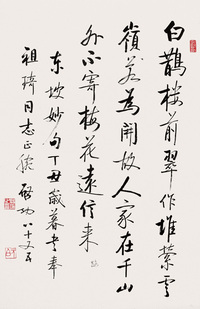 白鵲楼前翠作堆縈雲
嶺若為開故人家在千山
外不寄梅花遠信来
东坡妙句丁丑歲暮书奉
祖琦同志正腕 啓功 八十又五